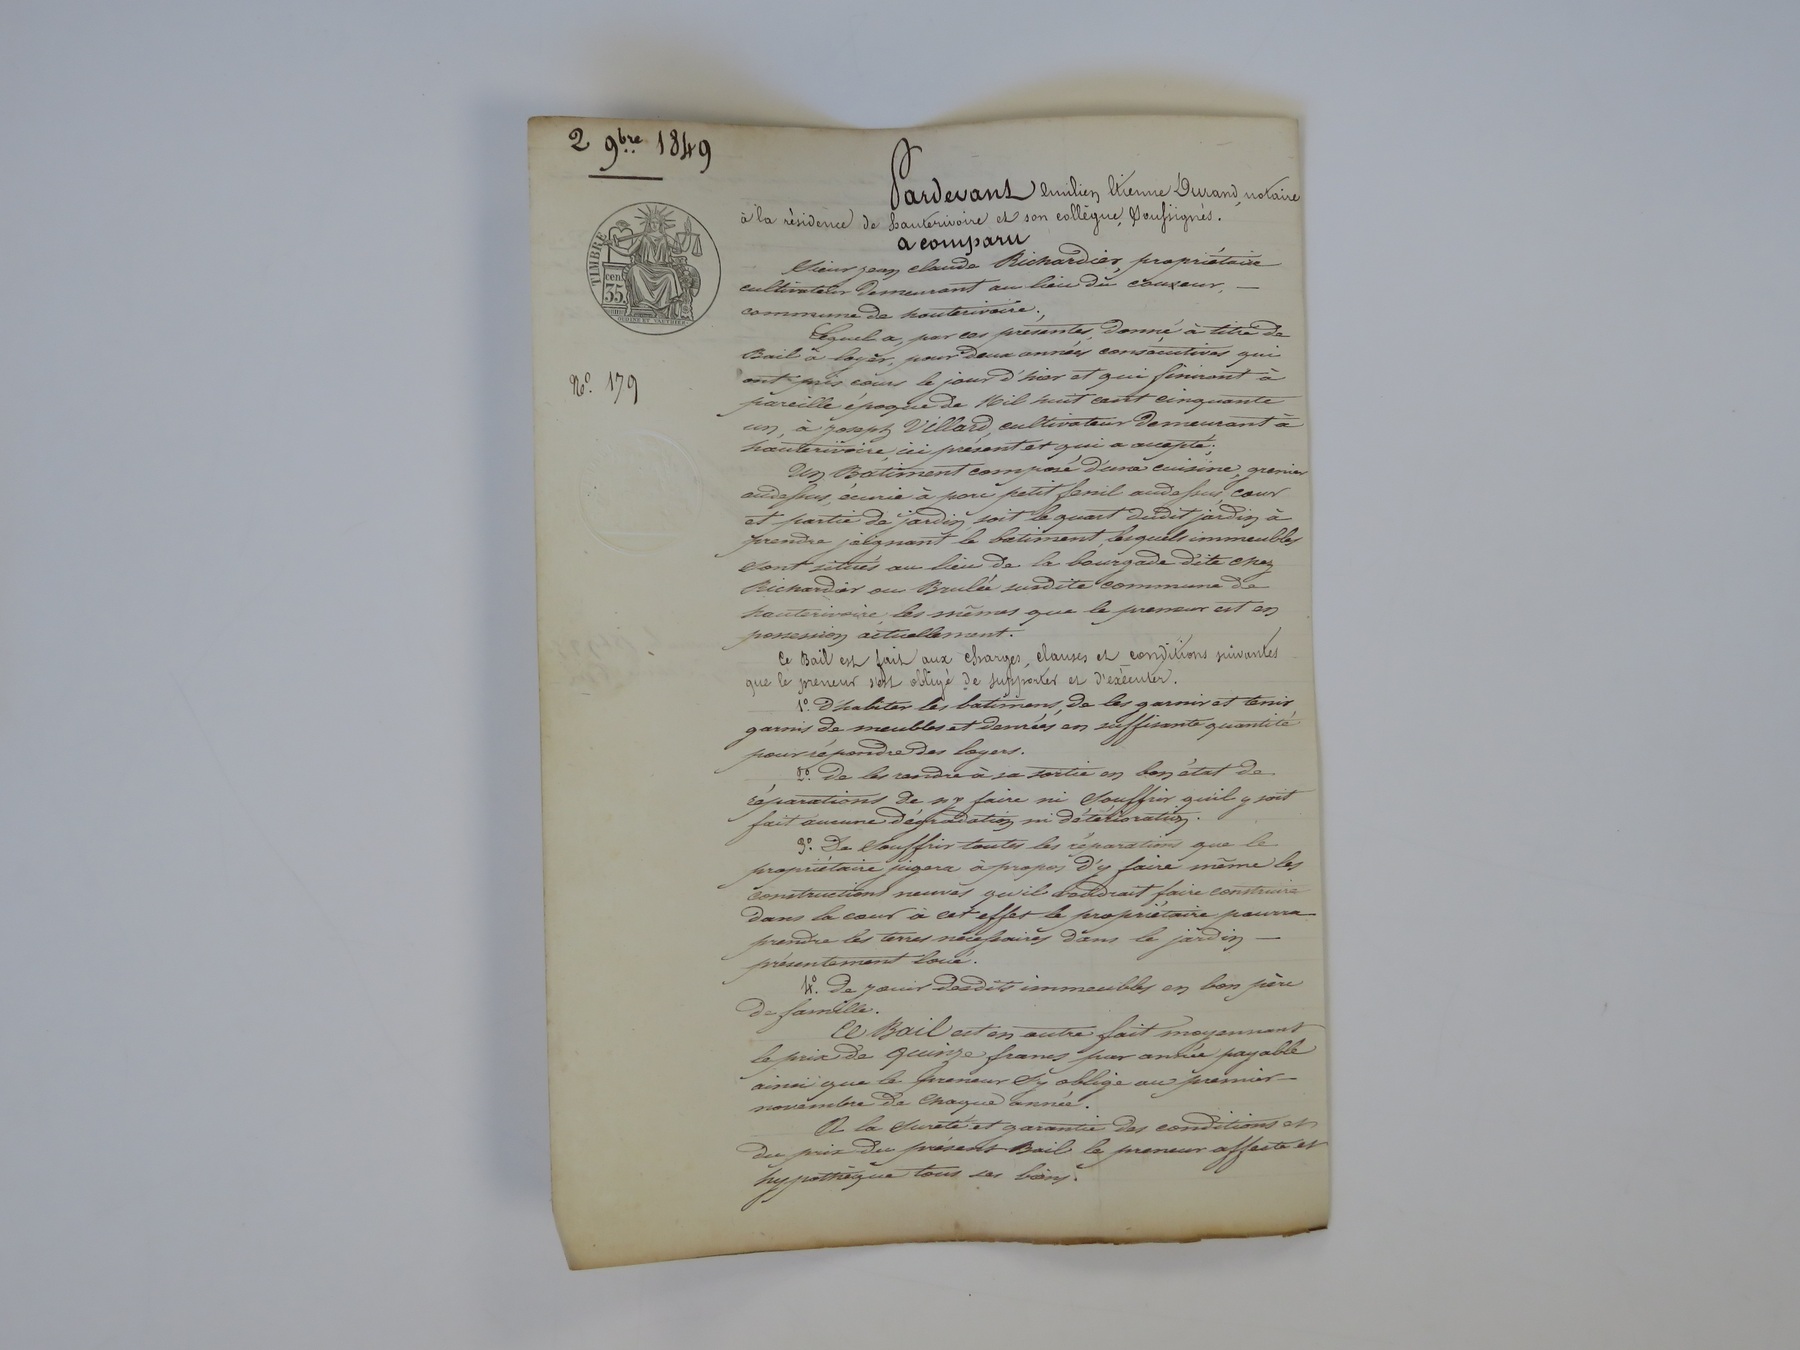 2 9bre 1849
TIMBRE
cen.
35.
No. 179
Pardevant Emilien Etienne Durand, notaire
à la résidence de hauterivoire et son collègue, soussignés.
a comparu
Sieur jean claude Richardier propriétaire
cultivateur demeurant au lieu du couzeur,
commune de hauterivoire.
Lequel a, par ces présentes, donné à titre de
Bail à loyer, pour deux années consécutives qui
ont pris cours le jour d'hier et qui finiront à
pareille époque de Mil huit cent cinquante
un, à joseph Villard, cultivateur demeurant à
hauterivoire ici présent et qui a accepté;
Un Bâtiment composé d'une cuisine, grenier
audessus, écurie à porc petit fenil audessus, cour
et partie de jardin soit le quart dudit jardin à
prendre joignant le bâtiment, lesquels immeubles
sont situés au lieu de la bourgade dite chez
Richardier ou Brulée susdite commune de
hauterivoire, les mêmes que le preneur est en
possession actuellement.
Ce Bail est fait aux charges, clauses et conditions suivantes
que le preneur s'est obligé de supporter et d'exécuter.
1o. D'habiter les batimens, de les garnir et tenir
garnis de meubles et denrées en suffisante quantité
pour répondre des loyers.
2o. De les rendre à sa sortie en bon état de
réparations de n'y faire ni souffrir qu'il y soit
fait aucune dégradation ni détérioration.
3o. De souffrir toutes les réparations que le
propriétaire jugera à propos d'y faire même les
constructions neuves qu'il voudrait faire construire
dans la cour à cet effet le propriétaire pourra
prendre les terres nécessaires dans le jardin
présentement loué.
4o. de jouir desdits immeubles en bon père
de famille.
Ce Bail est en outre fait moyennant
le prix de quinze francs par année payable
ainsi que le preneur s'y oblige au premier
novembre de chaque année.
A la sureté et garantie des conditions et
du prix du présent Bail le preneur affecte et
hypothèque tous ses biens.